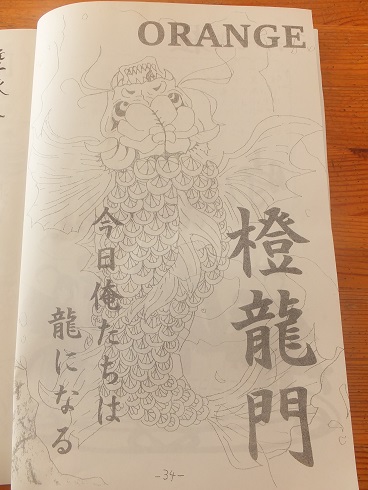 ORANGE
橙龍門
今日俺たちは
龍になる
-34-